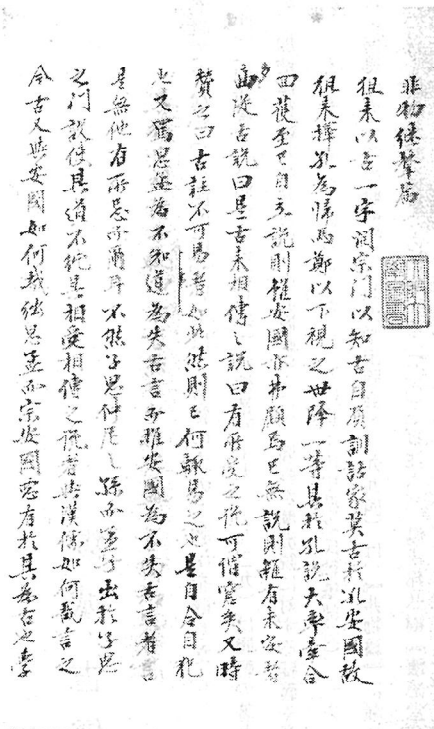 非物継声篇
徂来以古一字洞宗門以知古自負訓詁家莫古於孔安国故
徂来擇孔為帰馬鄭以下視之世降一等其於孔説大率牽合
回護至已自立説則雖安国亦弗顧焉已無説則雖有未安者
亦従古説曰是古来相傳之説曰有所受之説可謂寛矣又時
賛之曰古註不可易者如此然則已何輙易之也是自合自犯
也又獨思孟為不知道為失古言而雖安国為不失古言者
是無他有所忌而爾耳不然子思仲尼之孫而孟子出於子思
之門設使其道不純其相受相傳之説者與漢儒如何哉言之
今古又與安国如何哉絀思孟而宗安国悪有於其為古也李